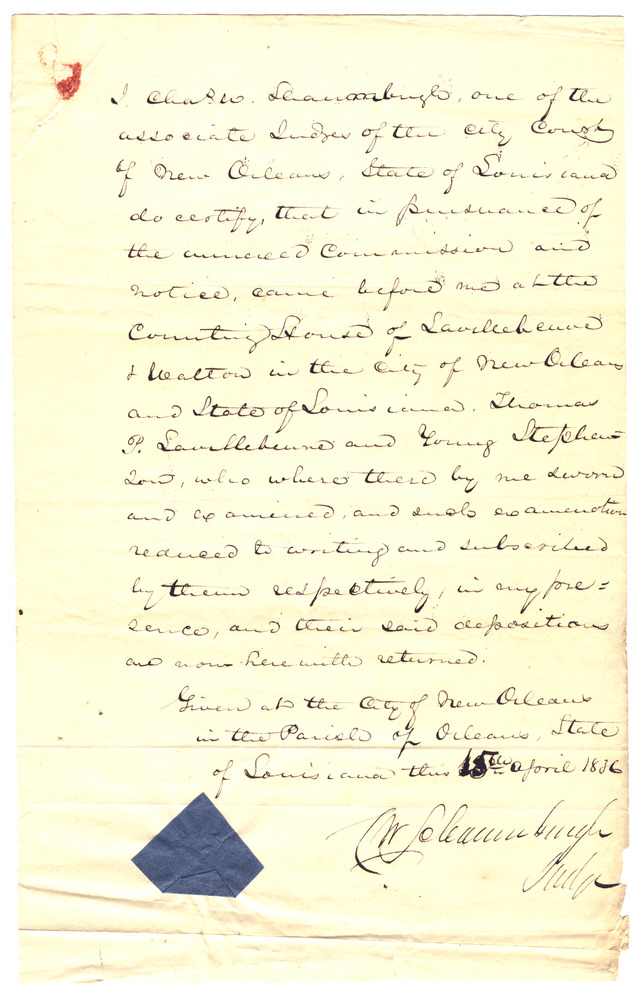 I Chas. W. Shaumburgh, one of the
associate Judges of the City Court
of New Orleans, State of Louisiana
do certify, that in pursuance of
the annexed Commission and
notice, came before me at the
Counting House of Lavillebeuvre
& Walton in the City of New Orleans
and State of Louisiana. Thomas
P. Lavillebeuvre and Young Stephen=
son, who where there by me sworn
and examined, and such examenation
reduced to writing and subscribed
by them respectively, in my pre=
sence, and their said depositions
are now herewith returned.
Given at the City of New Orleans
in the Parish of Orleans, State
of Louisiana this 15th April 1836
CW Schaumburgh
Judge